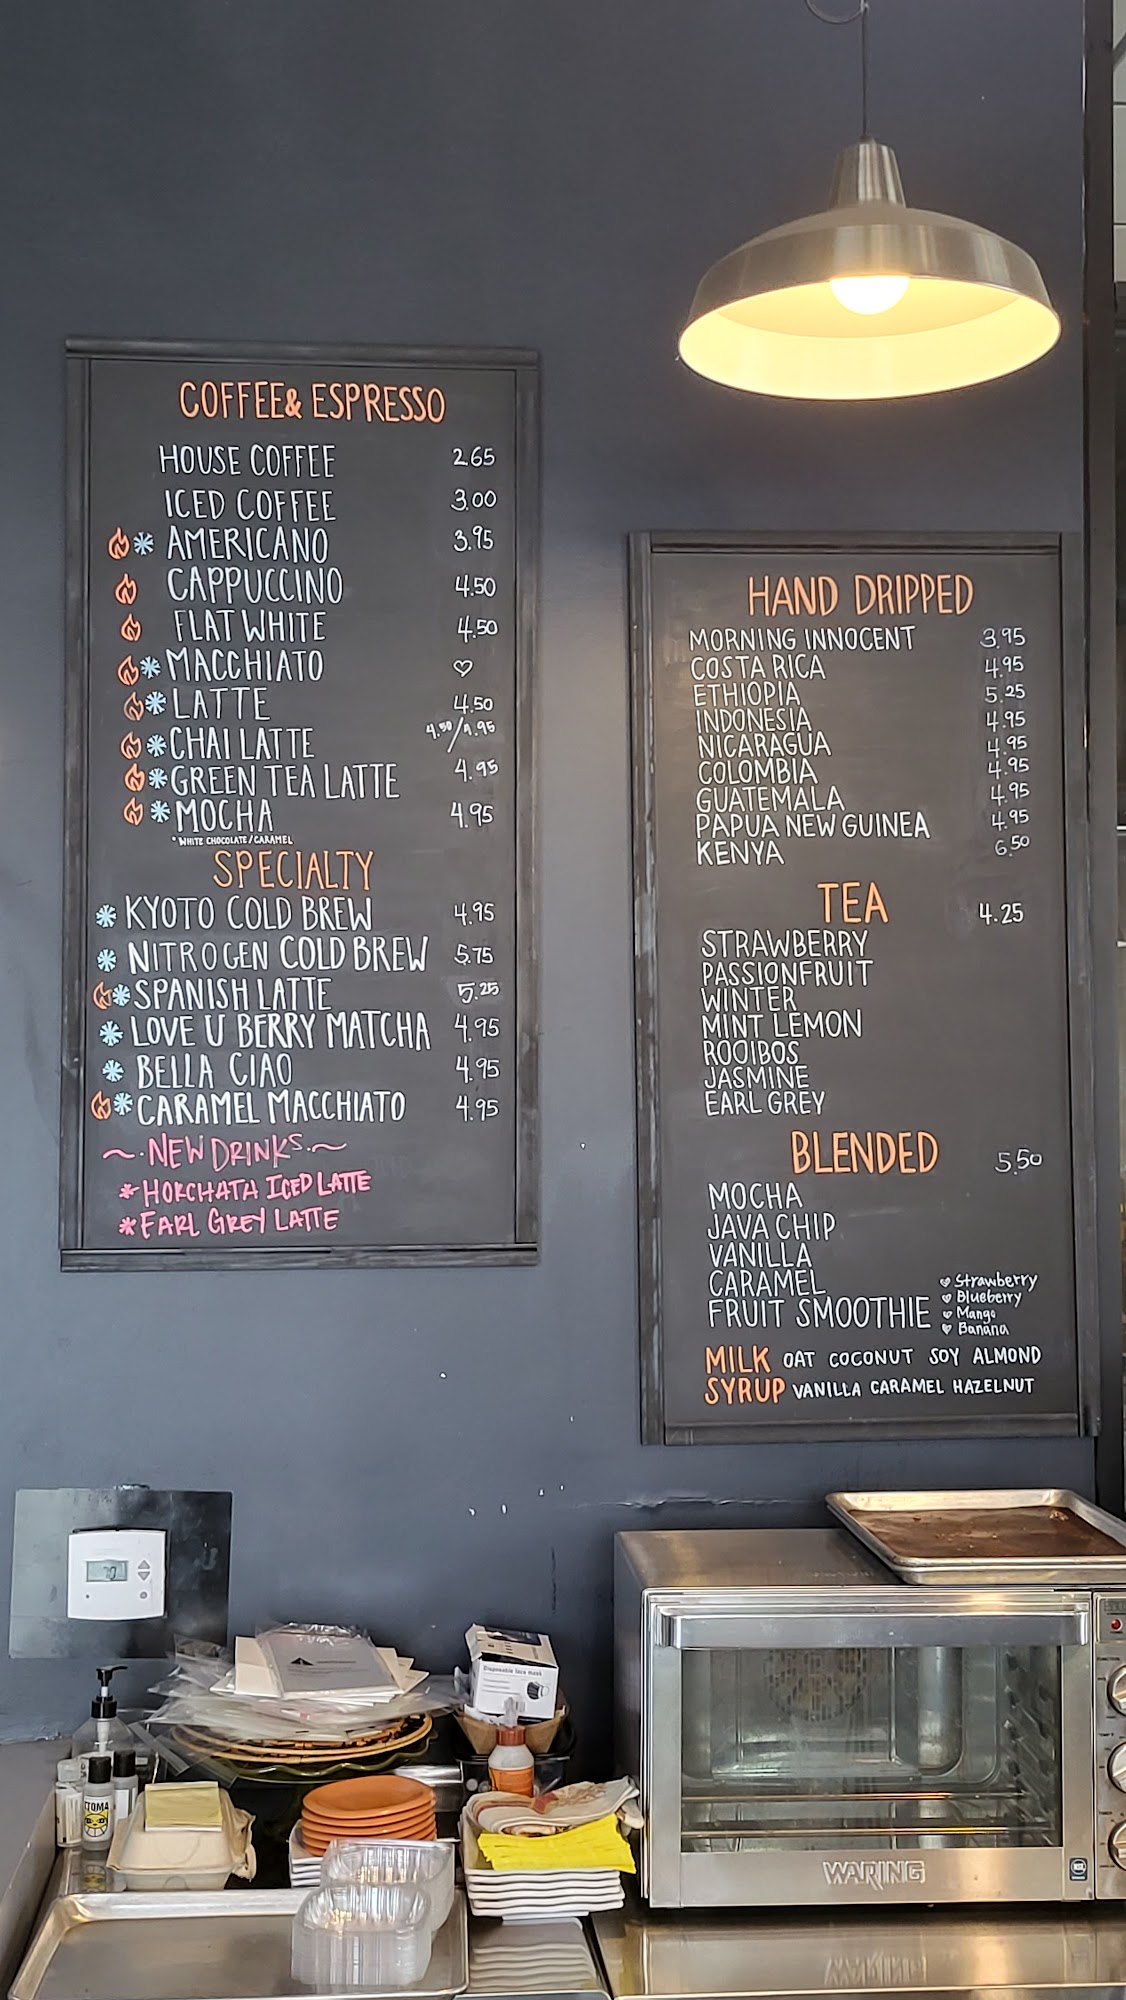 COFFEE & ESPRESSO
HOUSE COFFEE 2.65
ICED COFFEE 3.00
AMERICANO 3.95
CAPPUCCINO 4.50
FLAT WHITE 4.50
MACCHIATO ♡
LATTE 4.50
CHAI LATTE 4.50/4.95
GREEN TEA LATTE 4.95
MOCHA 4.95
* WHITE CHOCOLATE/CARAMEL
SPECIALTY
KYOTO COLD BREW 4.95
NITROGEN COLD BREW 5.75
SPANISH LATTE 5.25
LOVE U BERRY MATCHA 4.95
BELLA CIAO 4.95
CARAMEL MACCHIATO 4.95
~·NEW DRINKS.~
* HORCHATA ICED LATTE
* EARL GREY LATTE
HAND DRIPPED
MORNING INNOCENT 3.95
COSTA RICA 4.95
ETHIOPIA 5.25
INDONESIA 4.95
NICARAGUA 4.95
COLOMBIA 4.95
GUATEMALA 4.95
PAPUA NEW GUINEA 4.95
KENYA 6.50
TEA 4.25
STRAWBERRY
PASSIONFRUIT
WINTER
MINT LEMON
ROOIBOS
JASMINE
EARL GREY
BLENDED 5.50
MOCHA
JAVA CHIP
VANILLA
CARAMEL
FRUIT SMOOTHIE
Strawberry
Blueberry
Mango
Banana
MILK OAT COCONUT SOY ALMOND
SYRUP VANILLA CARAMEL HAZELNUT
70
Disposable face mask
TOMA
WARING
NSF